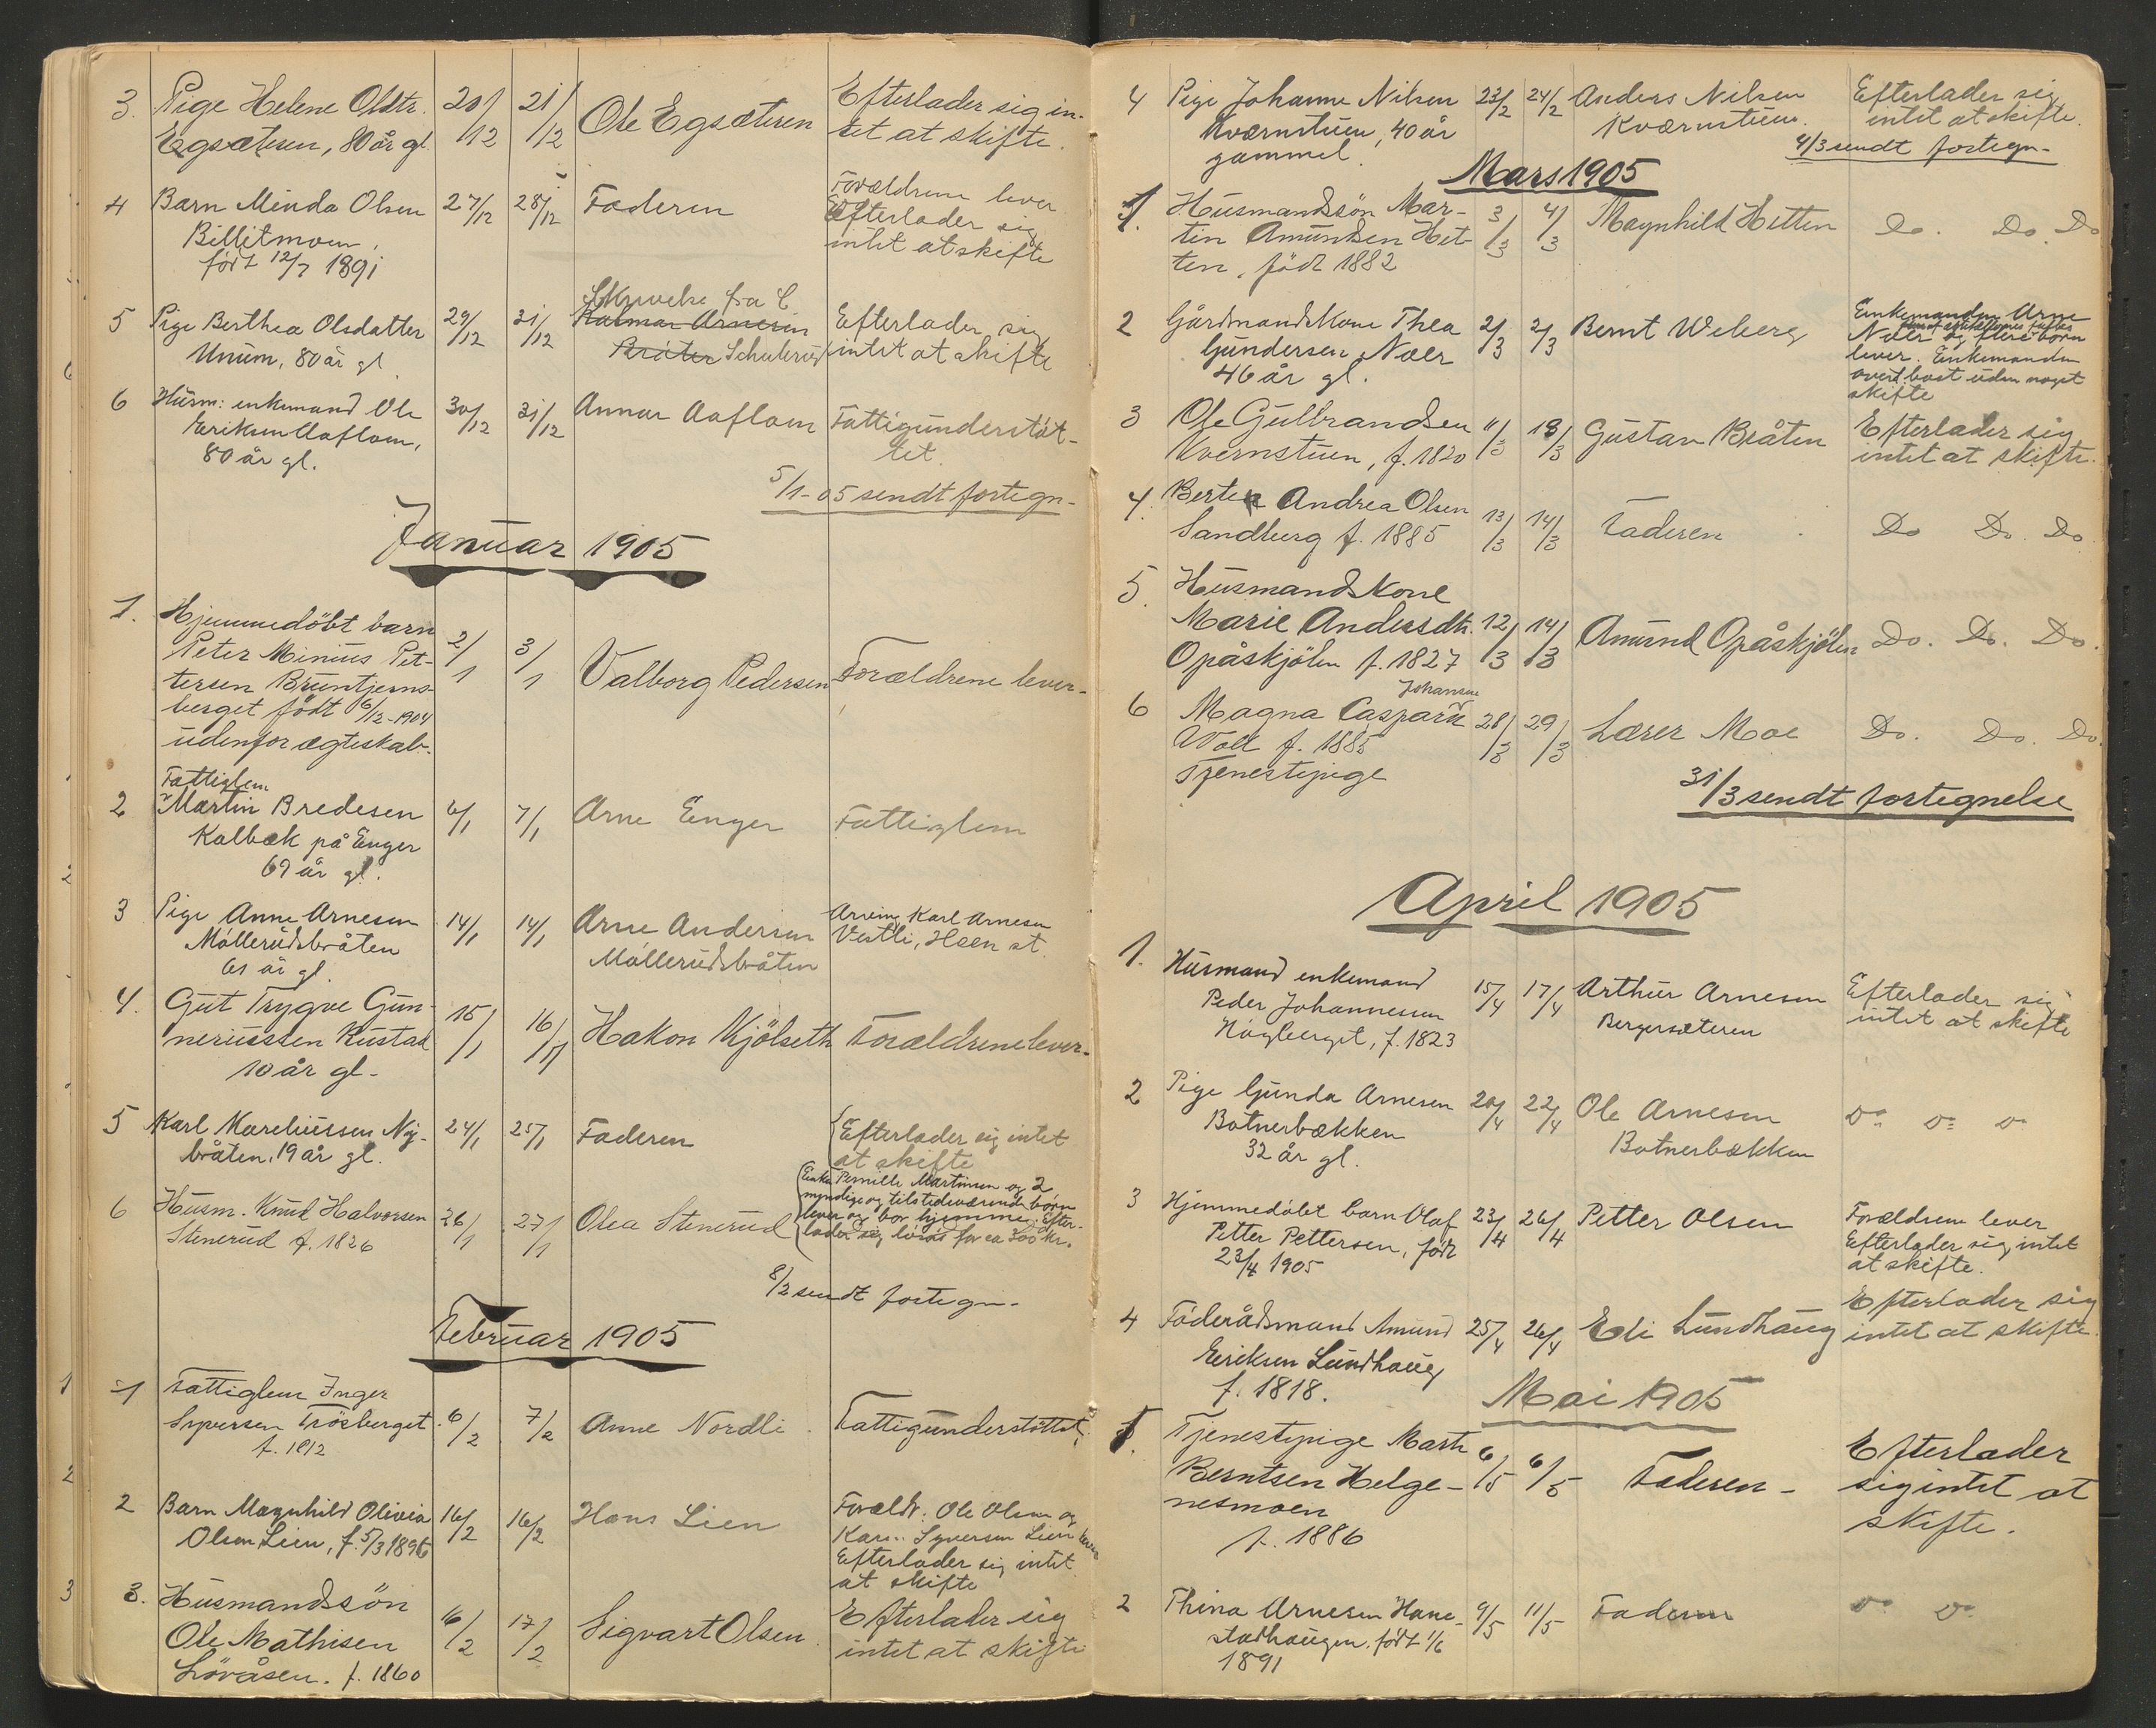 3. Pige Helene Olstr. 20/12 21/12 Ole Egsæteren Efterlader sig in-
Egsæteren, 80 år gl. tet at skifte.
4 Barn Minda Olsen 27/12 28/12 Faderen Forældrene lever
Billitmoen, Efterlader sig
født 12/7 1891 intet at skifte
Skrivelse fra C
5 Pige Berthea Olsdatter 29/12 31/12 Kalmar Arnesen Efterlader sig
Unum, 80 år gl. Bråten Schulerud intet at skifte
6 Husm: enkemand Ole 30/12 31/12 Annar Aaflom Fattigunderstöt-
Eriksen Aaflom, tet.
80 år gl.
5/1-05 sendt fortegn-
Januar 1905
1. Hjemmedöbt barn
Peter Minius Pet- 2/1 3/1 Valborg Pedersen Forældrene lever-
tersen Bruntjerns-
berget født 6/12-1904
udenfor ægteskab.
Fattiglem
2 Martin Bredesen 6/1 7/1 Arne Enger Fattiglem
Kalbæk på Enger
69 år gl.
3 Pige Anne Arnesen 14/1 14/1 Arne Andersen Arving Karl Arnesen
Möllerudsbråten Möllerudsbråten Vestli, Hæn st.
61 år gl.
4. Gut Trygve Gun- 15/1 16/1 Hakon Kjölseth Forældrene lever-
neriussen Rustad
10 år gl-
5 Karl Mareliussen Ny- 24/1 25/1 Faderen Efterlader sig intet
bråten, 19 år gl. at skifte
6 Husm. Knud Halvorsen 26/1 27/1 Olea Stenerud Enken Pernille Martinsen og 2
Stenerud f. 1826 myndige og tilstedeværende börn
lever og bor hjemme. Efter-
lader sig lösöre for ca 300 kr.
8/2 sendt fortegn-
Februar 1905
1 Fattiglem Inger
Syversen Trösberget 6/2 7/2 Anne Nordli Fattigunderstöttet
f. 1812
2 Barn Magnhild Olivia 16/2 16/2 Hans Lien Forældr. Ole Olsen og
Olsen Lien, f. 5/3 1896 Karen Syversen Lien lever
Efterlader sig intet
at skifte
3. Husmandssön
Ole Mathisen 16/2 17/2 Sigvart Olsen Efterlader sig
Lövåsen. f. 1860 intet at skifte
4 Pige Johanne Nilsen 23/2 24/2 Anders Nilsen Efterlader sig
Kværnstuen, 40 år Kværnstuen. intet at skifte.
gammel. 4/3 sendt fortegn-
Mars 1905
1. Husmandssön Mar- 3/3 4/3 Magnhild Hetten Do. Do. Do
tin Amundsen Het-
ten, född 1882
2 Gårdmandskone Thea 2/3 2/3 Bernt Weberg Enkemanden Arne
Gundersen Nær Nær og flere börn
46 år gl. lever. Enkemanden
overt. boet uden noget
skifte
3 Ole Gulbrandsen 11/3 13/3 Gustav Bråten Efterlader sig
Kvernstuen, f. 1820 intet at skifte.
4. Bertea Andrea Olsen
Sandberg f. 1885 13/3 14/3 Faderen Do Do. Do
5. Husmandskone
Marie Andersdtr. 12/3 14/3 Amund Opåskjölen Do. Do. Do.
Opåskjölen f. 1827
Johansen
6 Magna Casparа 28/3 29/3 Lærer Moe Do. Do. Do.
Woll f. 1885
Tjenestepige
31/3 sendt fortegnelse
April 1905
1. Husmand enkemand
Peder Johannesen 15/4 17/4 Arthur Arnesen Efterlader sig
Högberget, f. 1823 Bergersæteren intet at skifte
2 Pige Gunda Arnesen 20/4 22/4 Ole Arnesen Do Do Do
Botnerbækken Botnerbækken
32 år gl.
3 Hjemmedöbt barn Olaf 23/4 26/4 Petter Olsen Forældrene lever
Petter Pettersen, född Efterlader sig intet
23/4 1905 at skifte.
4 Föderådsmand Amund 25/4 26/4 Edi Lundhaug Efterlader sig
Eriksen Lundhaug intet at skifte.
f. 1818.
Mai 1905
1. Tjenestepige Marth 6/5 6/5 Faderen- Efterlader
Berntsen Helge- sig intet at
nesmoen skifte.
f. 1886
2 Thina Arnesen Hane- 9/5 11/5 Faderen Do Do
stadhaugen. født 1/6
1891